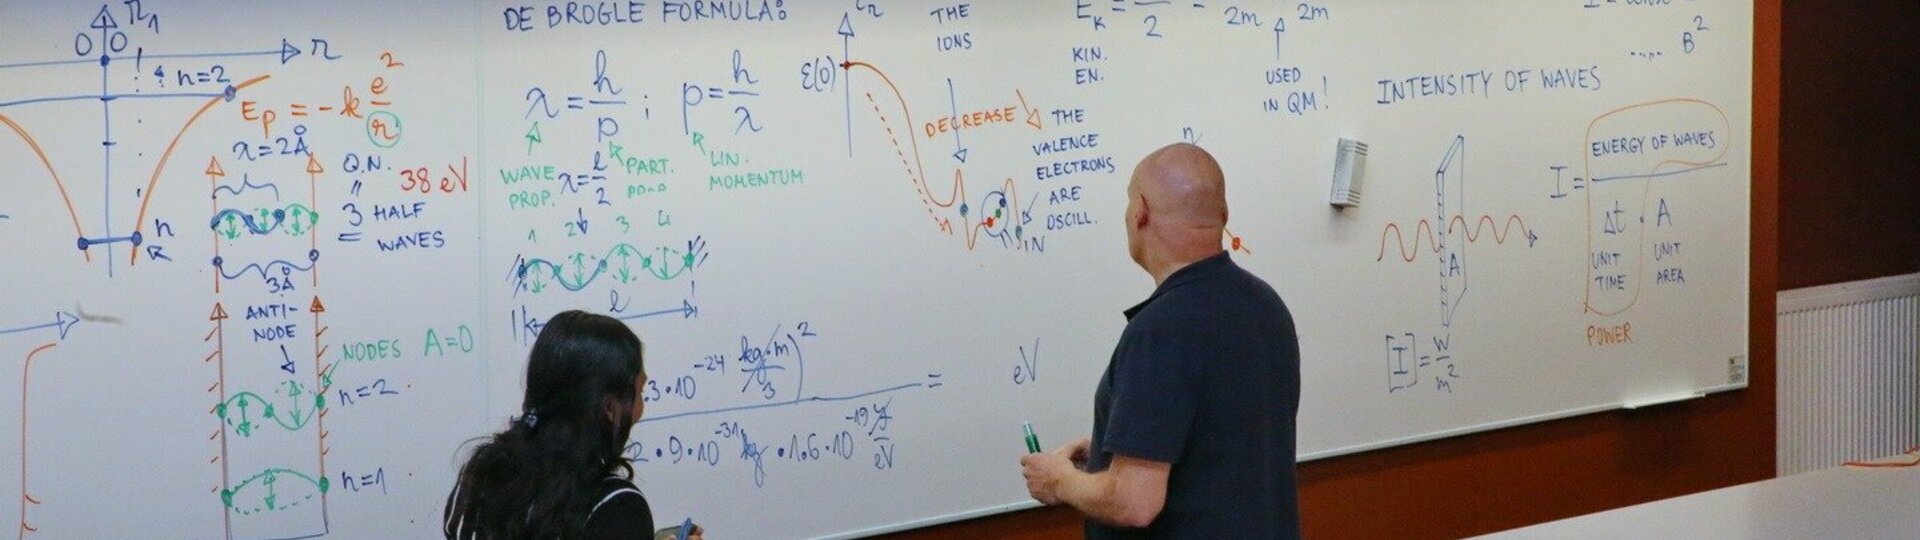 0 0
r
n=2
E_p = -k e²/r
λ=2Å
Q.N.
"
3 HALF
= WAVES
38 eV
n
3Å
ANTI-
NODE
NODES A=0
n=2
n=1
DE BROGLE FORMULA:
λ = h/p ; p = h/λ
WAVE
PROP.
PART.
LIN.
MOMENTUM
λ = l/2
1 2 3 4
l
3·10⁻²⁴ kg·m )²
= eV
2·9·10⁻³¹ kg · 1.6·10⁻¹⁹
eV
ε(0)
THE
IONS
DECREASE
THE
VALENCE
ELECTRONS
ARE
OSCILL.
IN
E_K = 2 = 2m 2m
KIN.
EN.
USED
IN QM!
n
B²
INTENSITY OF WAVES
ENERGY OF WAVES
I =
Δt · A
UNIT
TIME
UNIT
AREA
POWER
A
[I] = W/m²